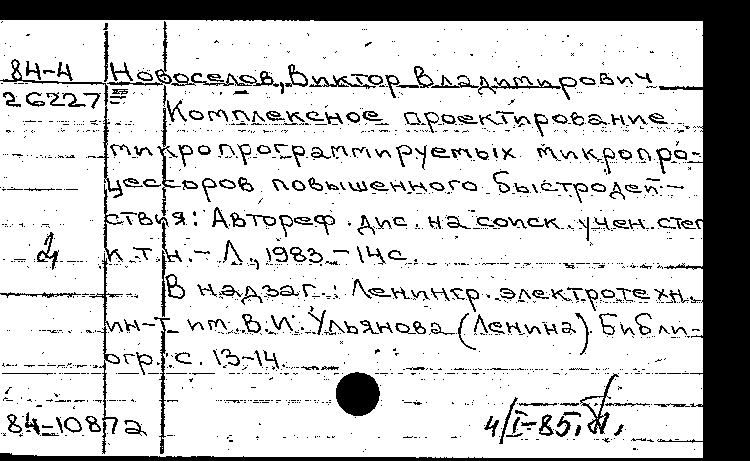 84-4 Новоселов, Виктор Владимирович
26227 Комплексное проектирование
микропрограммируемых микропро-
цессоров повышенного быстродей-
ствия: Автореф. дис. на соиск. учен. степ
к.т.н. - Л., 1983. - 14с.
В надзаг.: Ленингр. электротехн.
ин-т им. В.И. Ульянова (Ленина). Библи-
огр.: с. 13-14.
84-10872
4/I-85.